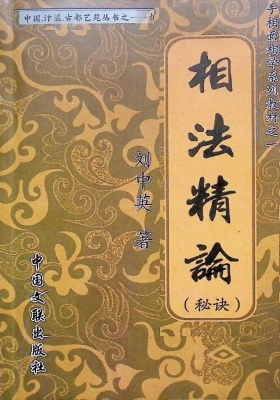 中国.汴梁.古都艺苑丛书之一
手相面相学系列教材之一
相法精論
(秘诀)
刘中英 著
中国文联出版社